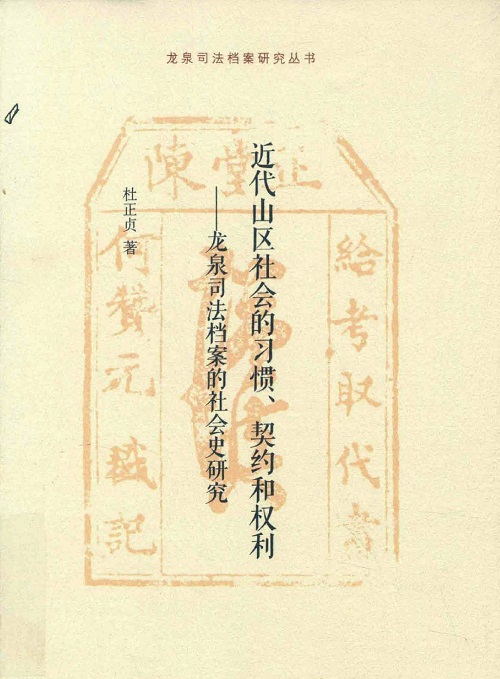 龙泉司法档案研究丛书
近代山区社会的习惯、契约和权利
——龙泉司法档案的社会史研究
杜正贞 著
正堂陳
給考取代書
何贊元戳記